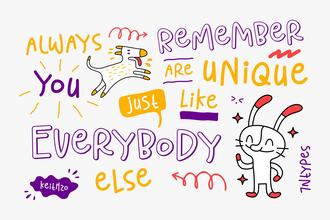 ALWAYS REMEMBER
You ARE UNIQUE
Just Like
EVERYBODY
ELSE
KEITHZO
7NTYPES